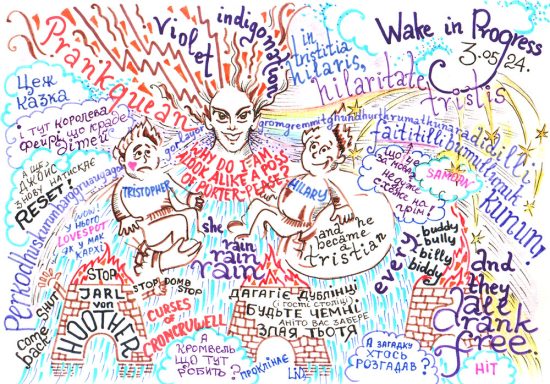 Wake in Progress
3.05.24.
violet
indigonation
Prankquean
in tristitia
hilaris,
hilaritate
tristis
Цеж
казка
і тут королева
феєрі що краде
дітей
А ще
Джойс
знову натискає
RESET!
WHY DO I AM
ALOOK ALIKE A POSS
OF PORTER-PEASE?
TRISTOPHER
HILARY
чому
у нього
LOVESPOT
як у мак
кархі
she
rain
rain
rain
and he
became
tristian
SAMDAN
every
buddy
bully
billy
biddy
and
they
all
drank
free.
come
back
SHUT
STOP
JARL
von
HOOTHER
STOP DOMB
STOP
CURSES
OF
CROMCRUWELL
ДАГАГІЄ ДУБЛІНЦІ
(і гості столиці)
БУДЬТЕ ЧЕМНІ
АНІТО ВАС ЗАБЕРЕ
ЗЛАЯ ТЬОТЯ
А КРОМВЕЛЬ
ЩО ТУТ
РОБИТЬ?
ПРОКЛІНАЄ
А ЗАГАДКУ
ХТОСЬ
РОЗГАДАВ?
НІТ